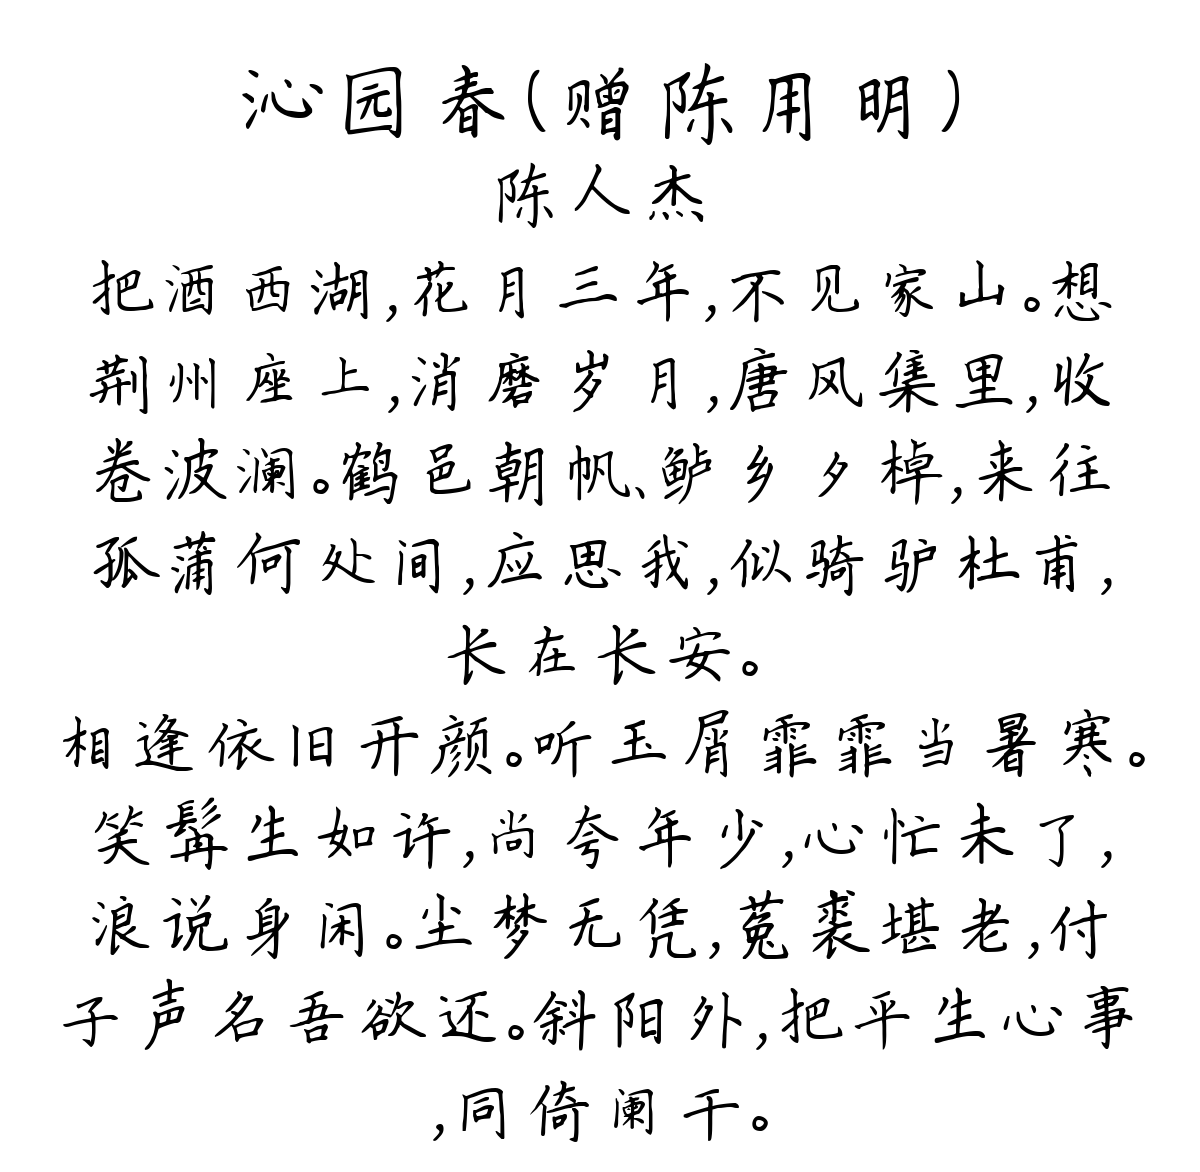 沁园春(赠陈用明)
陈人杰
把酒西湖,花月三年,不见家山。想
荆州座上,消磨岁月,唐风集里,收
卷波澜。鹤邑朝帆、鲈乡夕棹,来往
孤蒲何处间,应思我,似骑驴杜甫,
长在长安。
相逢依旧开颜。听玉屑霏霏当暑寒。
笑髯生如许,尚夸年少,心忙未了,
浪说身闲。尘梦无凭,菟裘堪老,付
子声名吾欲还。斜阳外,把平生心事
,同倚阑干。